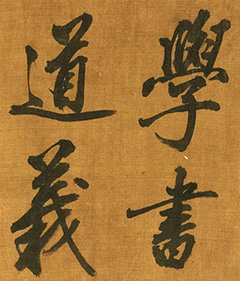 學書
道義